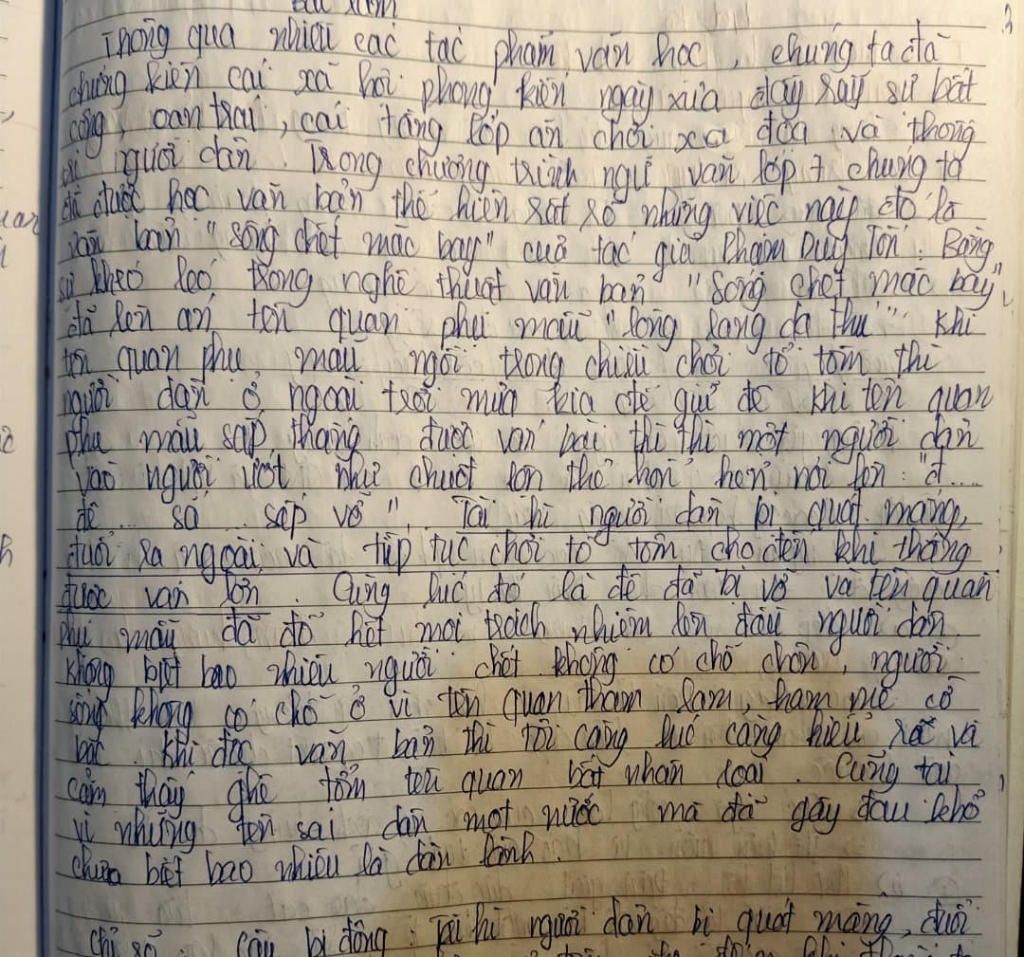 Bài làm
Thông qua nhiều các tác phẩm văn học, chúng ta đã
chứng kiến cái xã hội phong kiến ngày xưa đầy rẫy sự bất
công, oan trái, cái tầng lớp ăn chơi xa đọa và thống
người dân. Trong chương trình ngữ văn lớp 7 chúng ta
đã được học văn bản thể hiện rất rõ những việc này đó là
văn bản "sống chết mặc bay" của tác giả Phạm Duy Tốn. Bằng
sự khéo léo trong nghệ thuật văn bản "Sống chết mặc bay"
đã lên án tên quan phụ mẫu "lòng lang dạ thú". Khi
tên quan phụ mẫu ngồi trong chơi tổ tôm thì
người dân ở ngoài trời mưa kia để giữ đê. Khi tên quan
phụ mẫu sắp thắng được ván bài thì thì một người dân
vào người ướt như chuột lột thở hổn hển nói lên: "đ....
đê... sã... sắp vỡ". Tài hi người dân bị quát mắng,
đuổi ra ngoài và tiếp tục chơi tổ tôm cho đến khi thắng
được ván lớn. Cùng lúc đó là đê đã bị vỡ và tên quan
phụ mẫu đã đổ hết mọi trách nhiệm lên đầu người dân.
Không biết bao nhiêu người chết không có chỗ chôn, người
sống không có chỗ ở vì tên quan tham lam, ham mê cờ
bạc. Khi đọc văn bản thì tôi càng lúc càng hiểu rõ và
cảm thấy ghê tởm tên quan bất nhân loại. Cũng tại
vì những tên sai dân một nước mà đã gây đau khổ
chưa biết bao nhiêu là dân lành.
Chỉ số câu bị động: Tài hi người dân bị quát mắng, đuổi